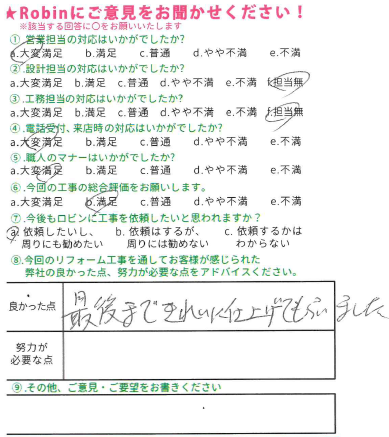 ★Robinにご意見をお聞かせください！
※該当する回答に〇をお願いいたします
①.営業担当の対応はいかがでしたか?
a.大変満足 b.満足 c.普通 d.やや不満 e.不満
②.設計担当の対応はいかがでしたか?
a.大変満足 b.満足 c.普通 d.やや不満 e.不満 f.担当無
③.工務担当の対応はいかがでしたか?
a.大変満足 b.満足 c.普通 d.やや不満 e.不満 f.担当無
④.電話受付、来店時の対応はいかがでしたか?
a.大変満足 b.満足 c.普通 d.やや不満 e.不満
⑤.職人のマナーはいかがでしたか?
a.大変満足 b.満足 c.普通 d.やや不満 e.不満
⑥.今回の工事の総合評価をお願いします。
a.大変満足 b.満足 c.普通 d.やや不満 e.不満
⑦.今後もロビンに工事を依頼したいと思われますか？
a.依頼したいし、 b.依頼はするが、 c.依頼するかは
周りにも勧めたい 周りには勧めない わからない
⑧.今回のリフォーム工事を通してお客様が感じられた
弊社の良かった点、努力が必要な点をアドバイスください。
良かった点 最後まできれいに仕上げてもらいました
努力が
必要な点
⑨.その他、ご意見・ご要望をお書きください